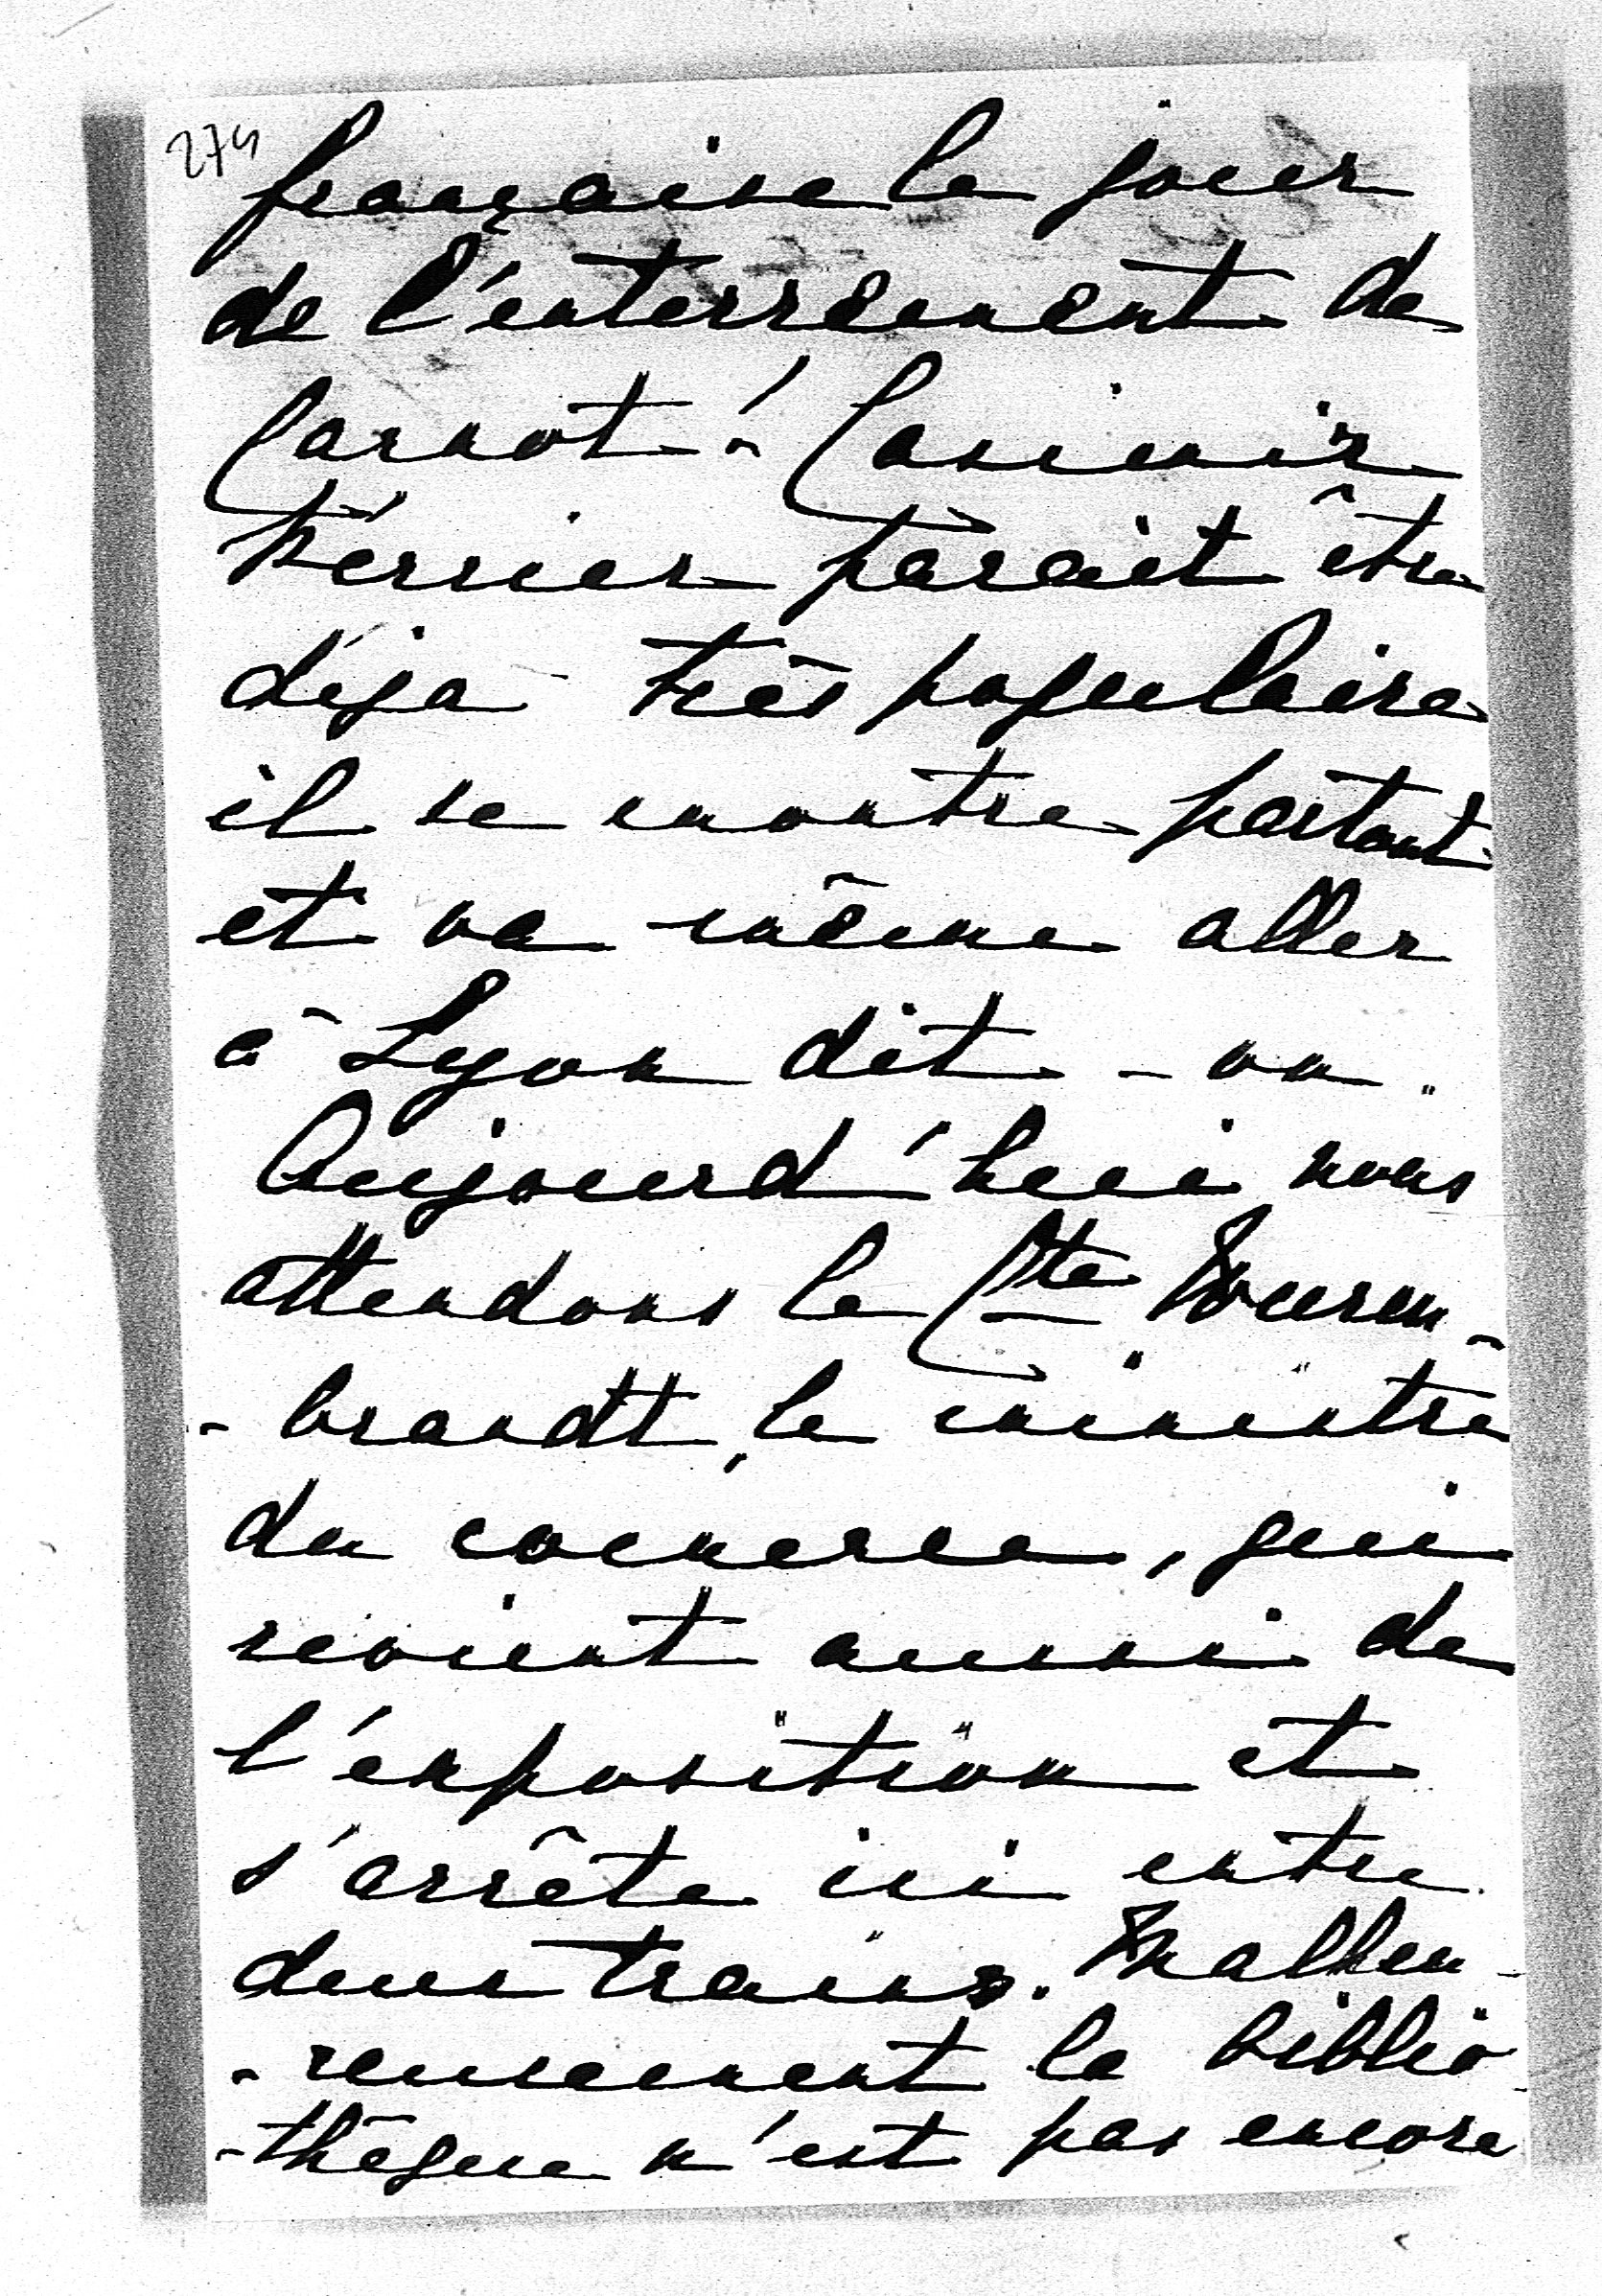 274
française le jour
de l'enterrement de
Carnot - Casimir
Périer paraît être
déja très populaire
il se montre partout
et va même aller
à Lyon dit - on.
Aujourd'hui nous
attendons le Cte Wurm-
- brandt, le ministre
du comerce, qui
revient aussi de
l'exposition et
s'arrête ici entre
deux trains. Malheu-
- reusement la biblio-
- thèque n'est pas encore